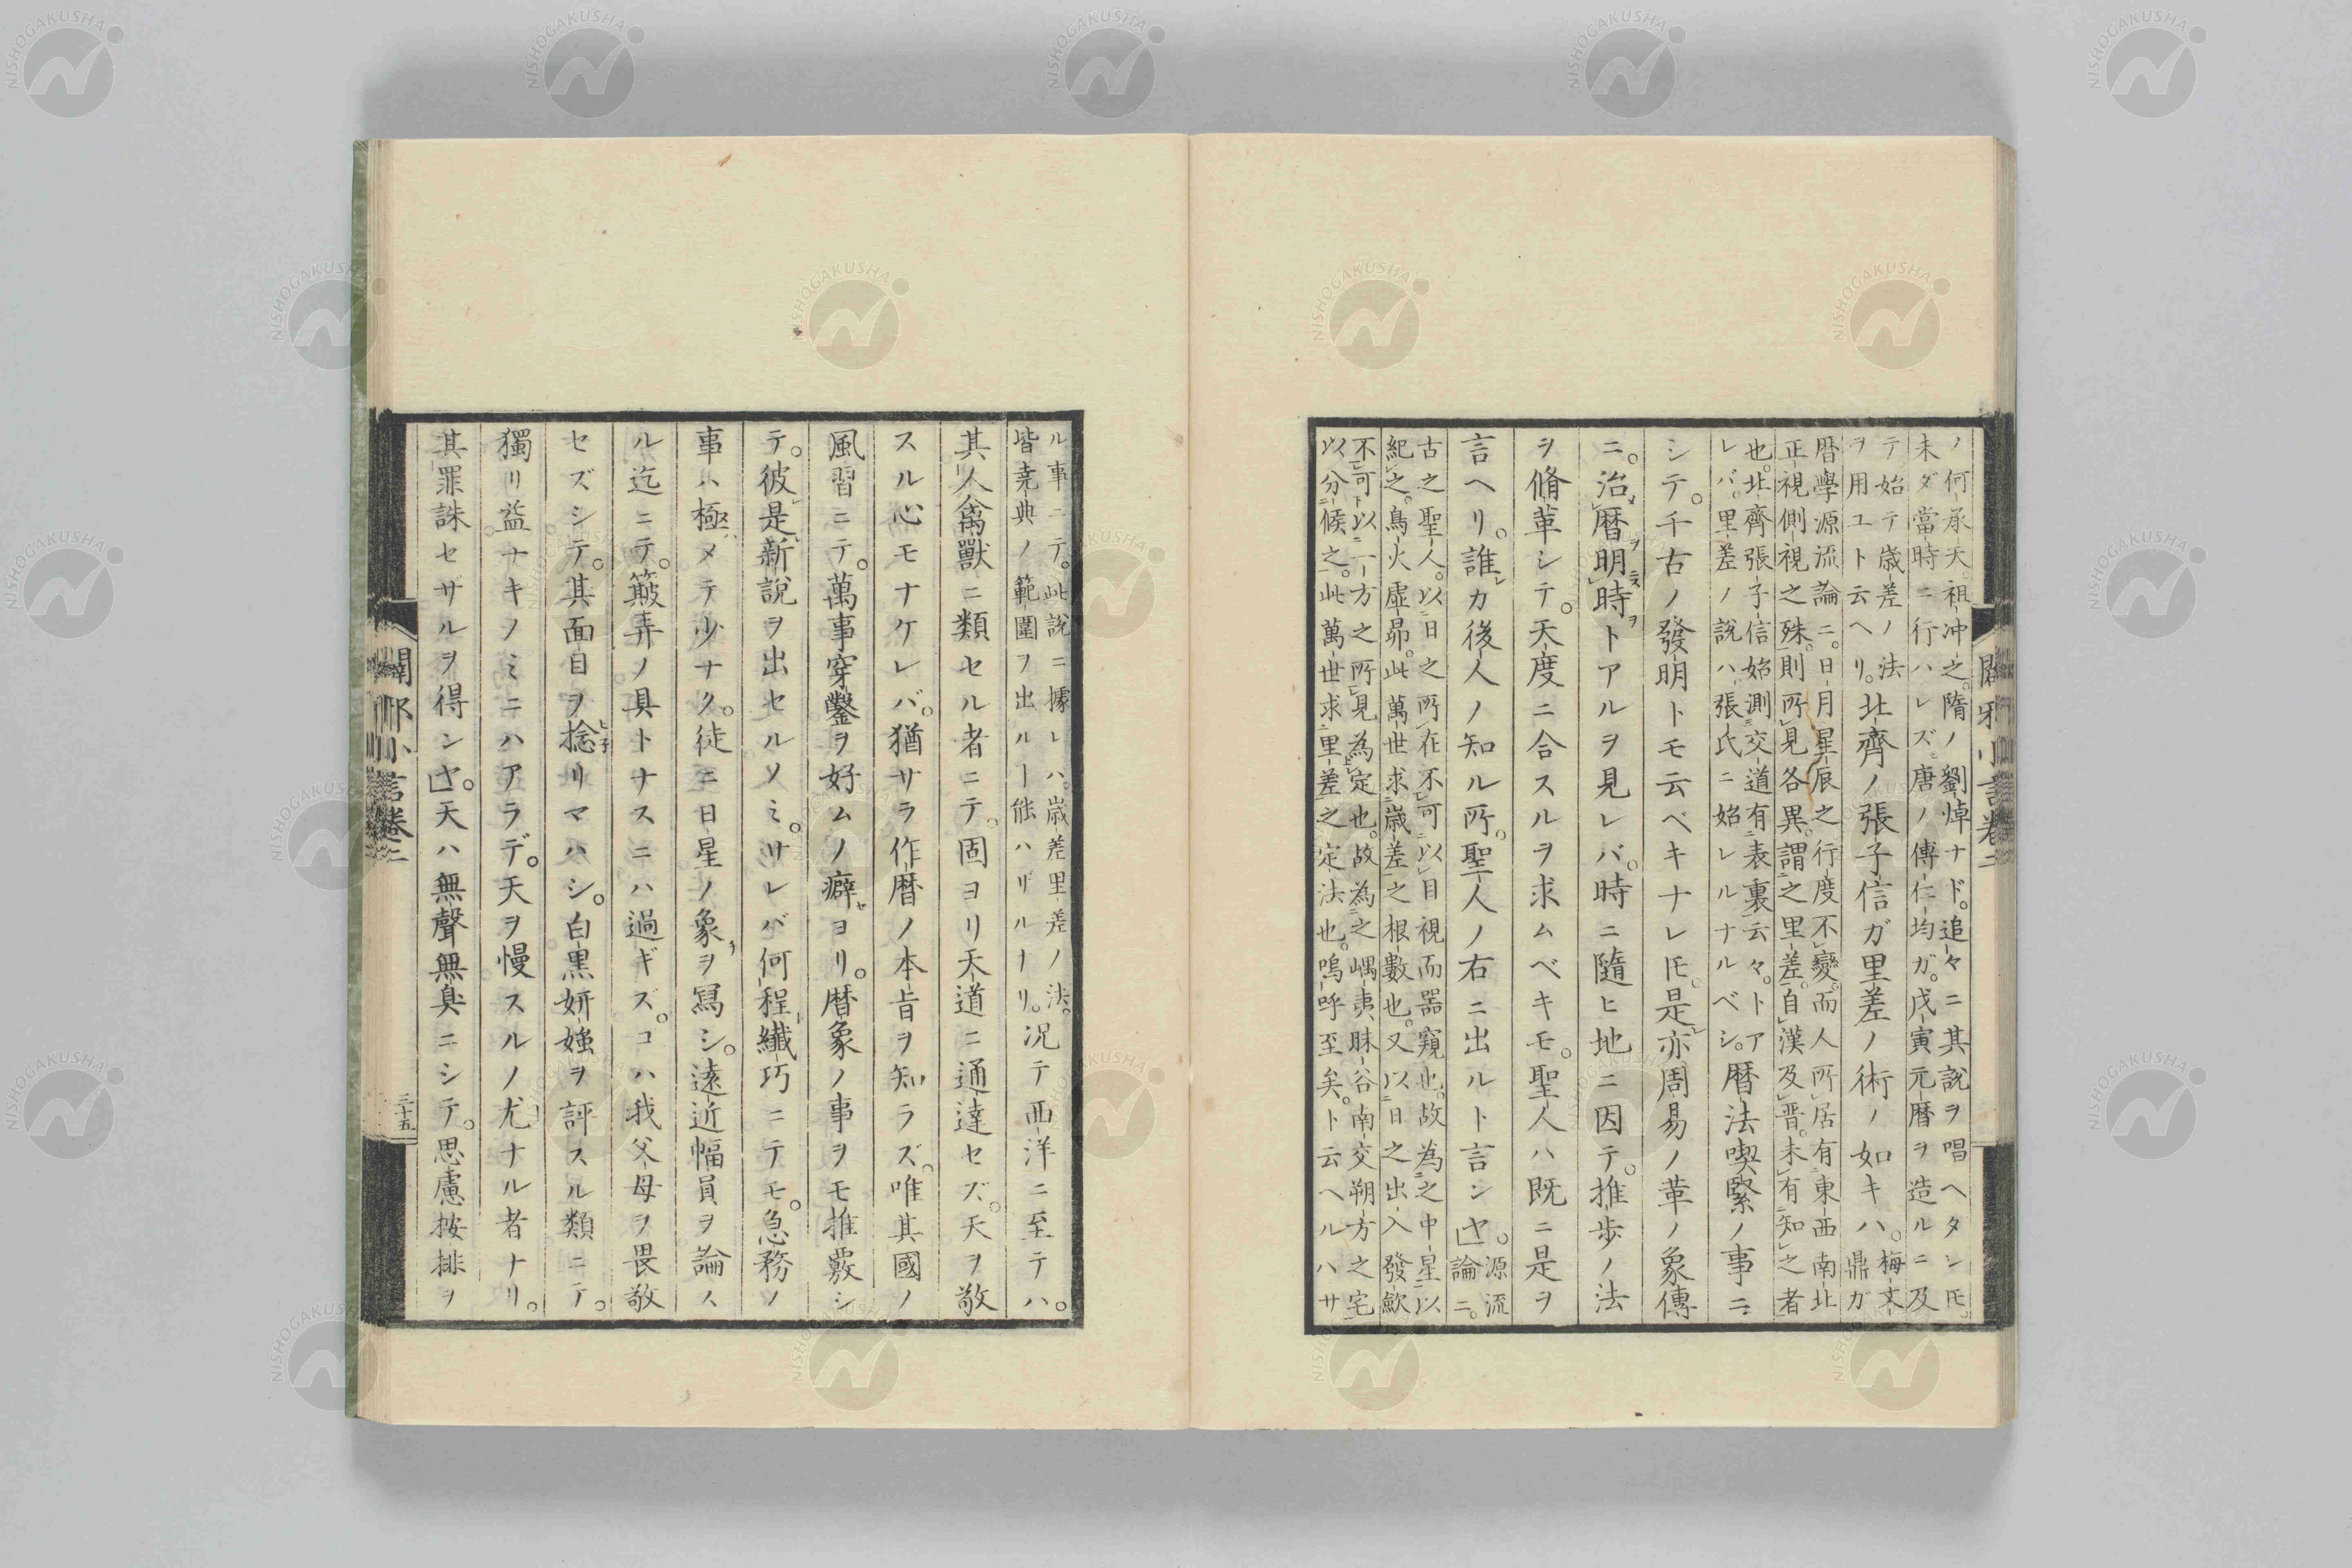 ノ何承天。祖冲之。隋ノ劉焯ナド。追々ニ其說ヲ唱ヘタレ𪜈。
未ダ當時ニ行ハレズ。唐ノ傅仁均ガ。戊寅元曆ヲ造ルニ及
テ。始テ歲差ノ法
ヲ用ユト云ヘリ。
北齊ノ張子信ガ里差ノ術ノ如キハ。
梅文
鼎ガ
曆學源流論ニ。日月星辰之行度不變。而人所居有東西南北
正視側視之殊。則所見各異。謂之里差。自漢及晋。未有知之者
也。北齊張子信始測交道有表裏云々。トア
レバ。里差ノ說ハ。張氏ニ始レルナルベシ。
曆法喫緊ノ事ニ
シテ。千古ノ發明トモ云ベキナレ𪜈。是亦周易ノ革ノ象傳
ニ。治曆明時トアルヲ見レバ。時ニ隨ヒ地ニ因テ。推步ノ法
ヲ脩革シテ。天度ニ合スルヲ求ムベキモ。聖人ハ既ニ是ヲ
言ヘリ。誰カ後人ノ知ル所。聖人ノ右ニ出ルト言ンヤ。
源流
論ニ。
古之聖人。以日之所在不可以目視而器窺也。故為之中星以
紀之。鳥火虛昴。此萬世求歲差之根數也。又以日之出入發歛
不可以一方之所見為定也。故為之嵎夷、昧谷南交朔方之宅
以分候之。此萬世求里差之定法也。嗚呼至矣。ト云ヘルハサ
闢邪小言卷二
ル事ニテ。此說ニ據レハ。歲差里差ノ法。
皆堯典ノ範圍ヲ出ルヿ能ハザルナリ。
况テ西洋ニ至テハ。
其人禽獸ニ類セル者ニテ。固ヨリ天道ニ通達セズ。天ヲ敬
スル心モナケレバ。猶サラ作曆ノ本旨ヲ知ラズ。唯其國ノ
風習ニテ。萬事穿鑿ヲ好ムノ癖ヨリ。曆象ノ事ヲモ推覈シ
テ。彼是新說ヲ出セルノミ。サレバ何程纖巧ニテモ。急務ノ
事ハ極メテ少ナク。徒ニ日星ノ象ヲ寫シ。遠近幅員ヲ論ス
ル迄ニテ。簸弄ノ具トナスニハ過ギズ。コハ我父母ヲ畏敬
セズシテ。其面目ヲ捻リマハシ。白黑妍媸ヲ評スル類ニテ。
獨リ益ナキノミニハアラデ。天ヲ慢スルノ尤ナル者ナリ。
其罪誅セザルヲ得ンヤ。天ハ無聲無臭ニシテ。思慮按排ヲ
闢邪小言卷二
三十五
NISHOGAKUSHA